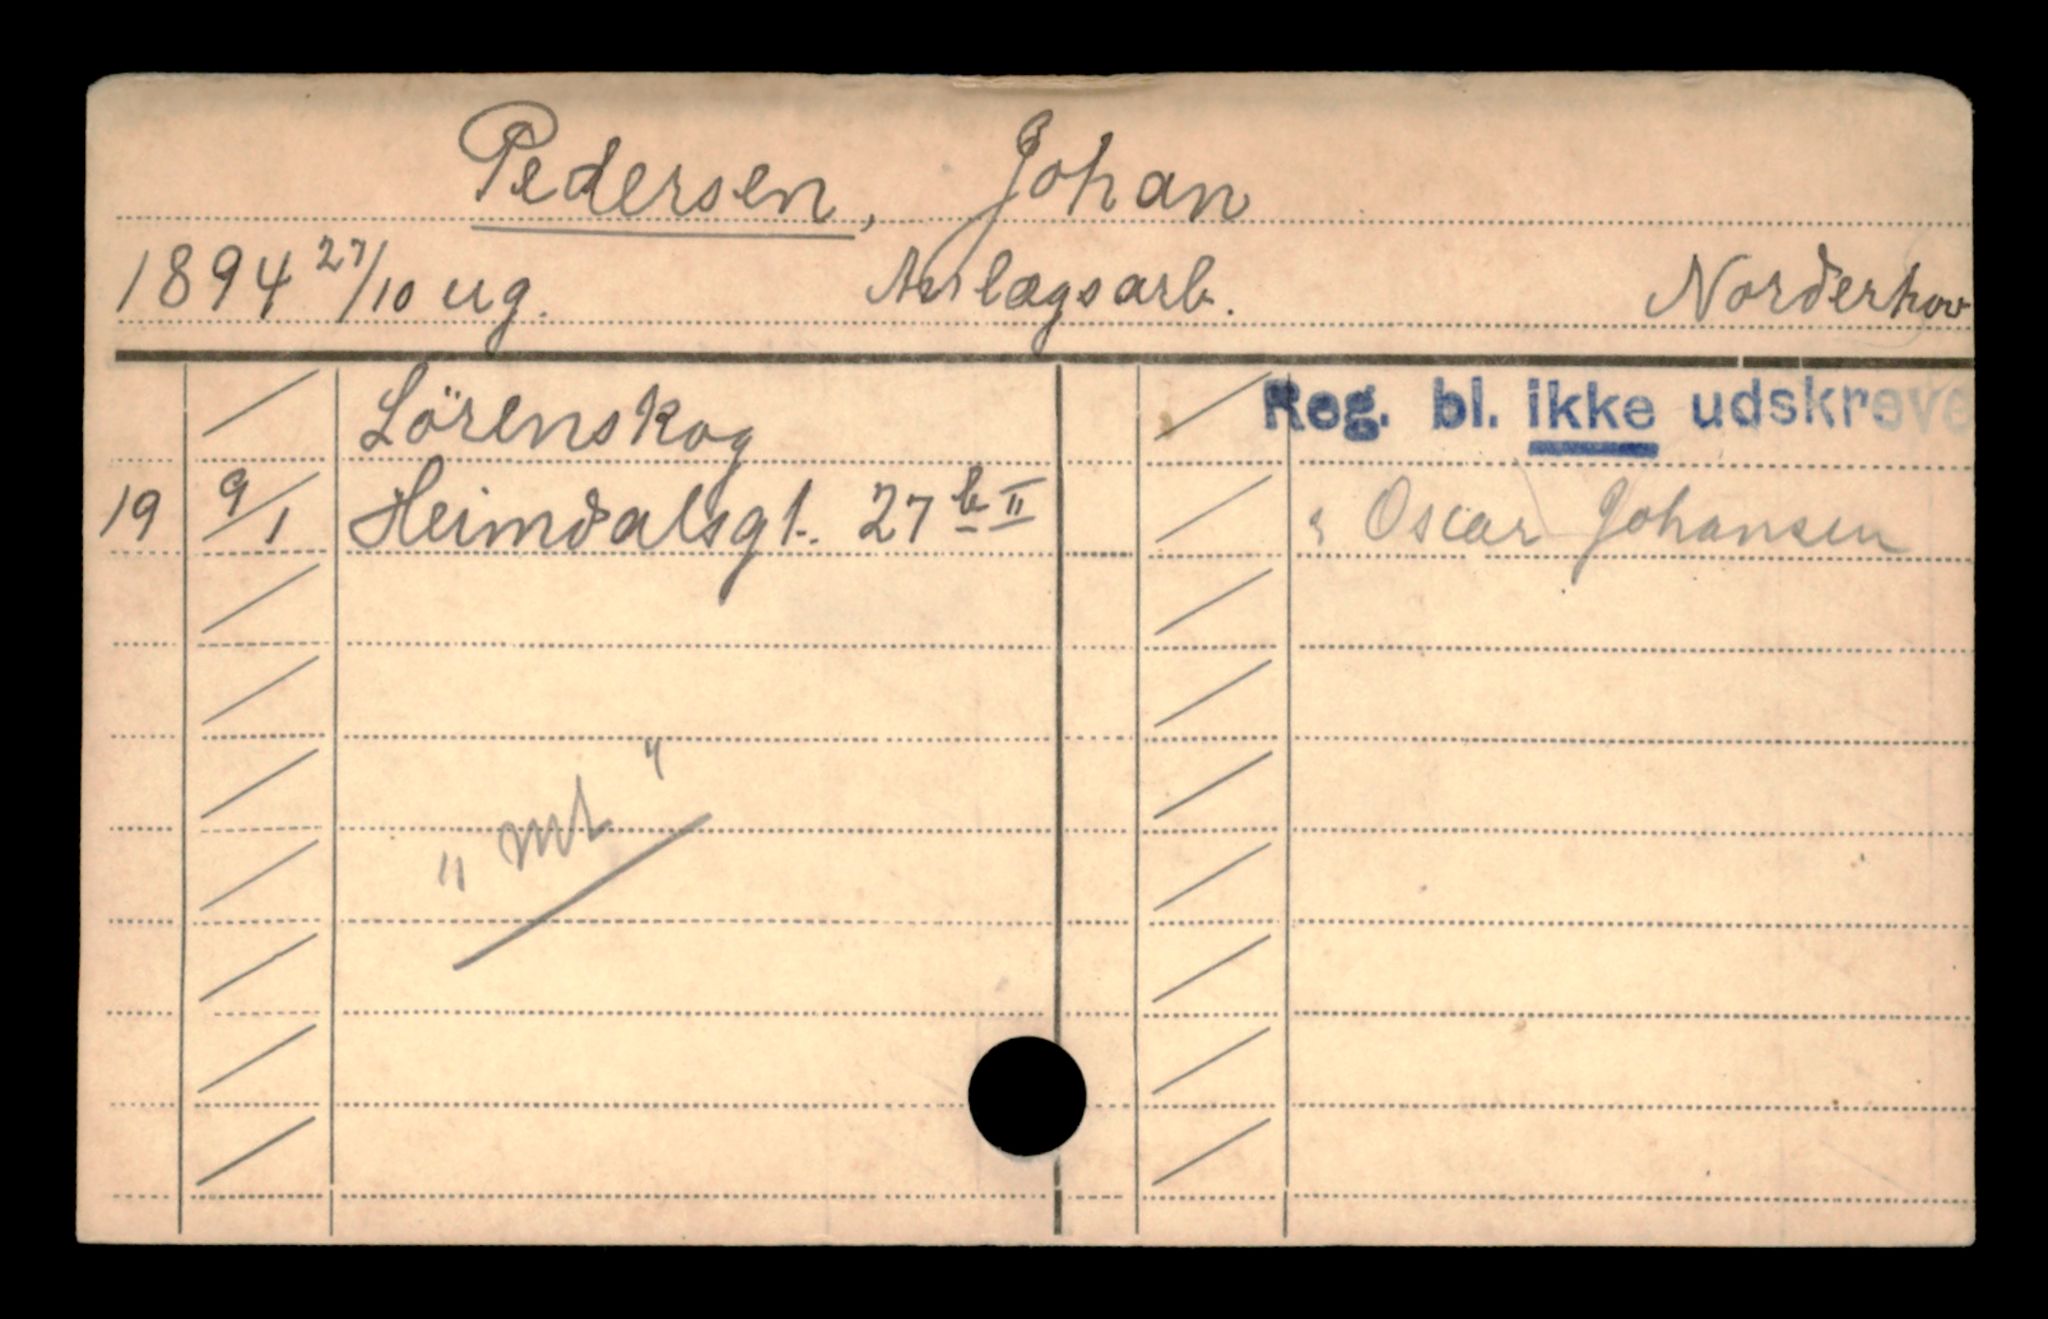 Pedersen, Johan
1894 27/10 ug. Anlægsarb. Norderhov
Lörenskog
19 9/1 Heimdalsgt. 27 b II
" "
Reg. bl. ikke udskreve
Oscar Johansen